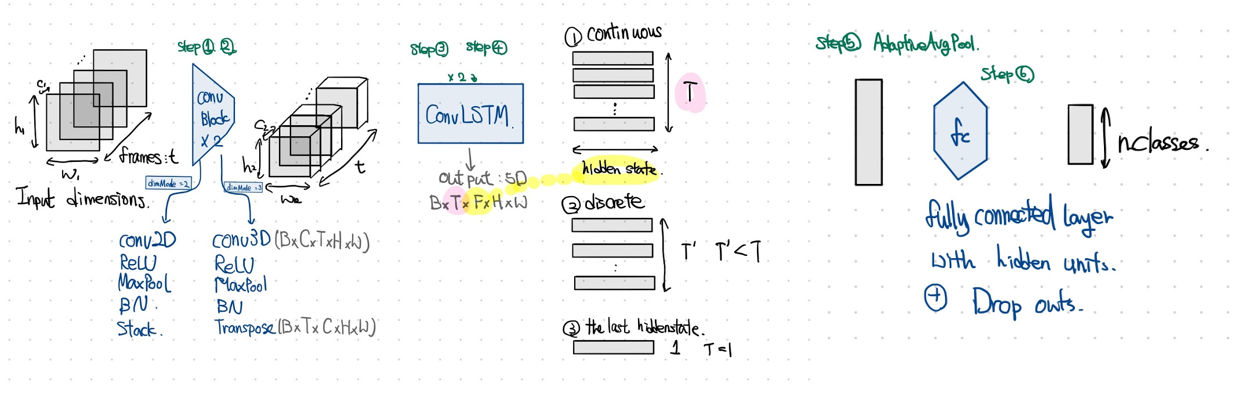 C₁
h₁
w₁
frames:t
Input dimensions.
Step① ②
Conv
Block
x 2
dimMode=2
dimMode=3
C₂
h₂
w₂
t
conv2D
ReLU
MaxPool
BN.
Stack.
conv3D (BxCxTxHxW)
ReLU
MaxPool
BN
Transpose (BxTxCxHxW)
Step③ step④
x 2
ConvLSTM.
output : 5D
BxTxFxHxW
① continuous
T
hidden state.
② discrete
T' T'<T
③ the last hiddenstate.
1 T=1
Step⑤ AdaptiveAvgPool.
Step⑥
fc
nclasses.
fully connected layer
with hidden units.
⊕ Drop outs.